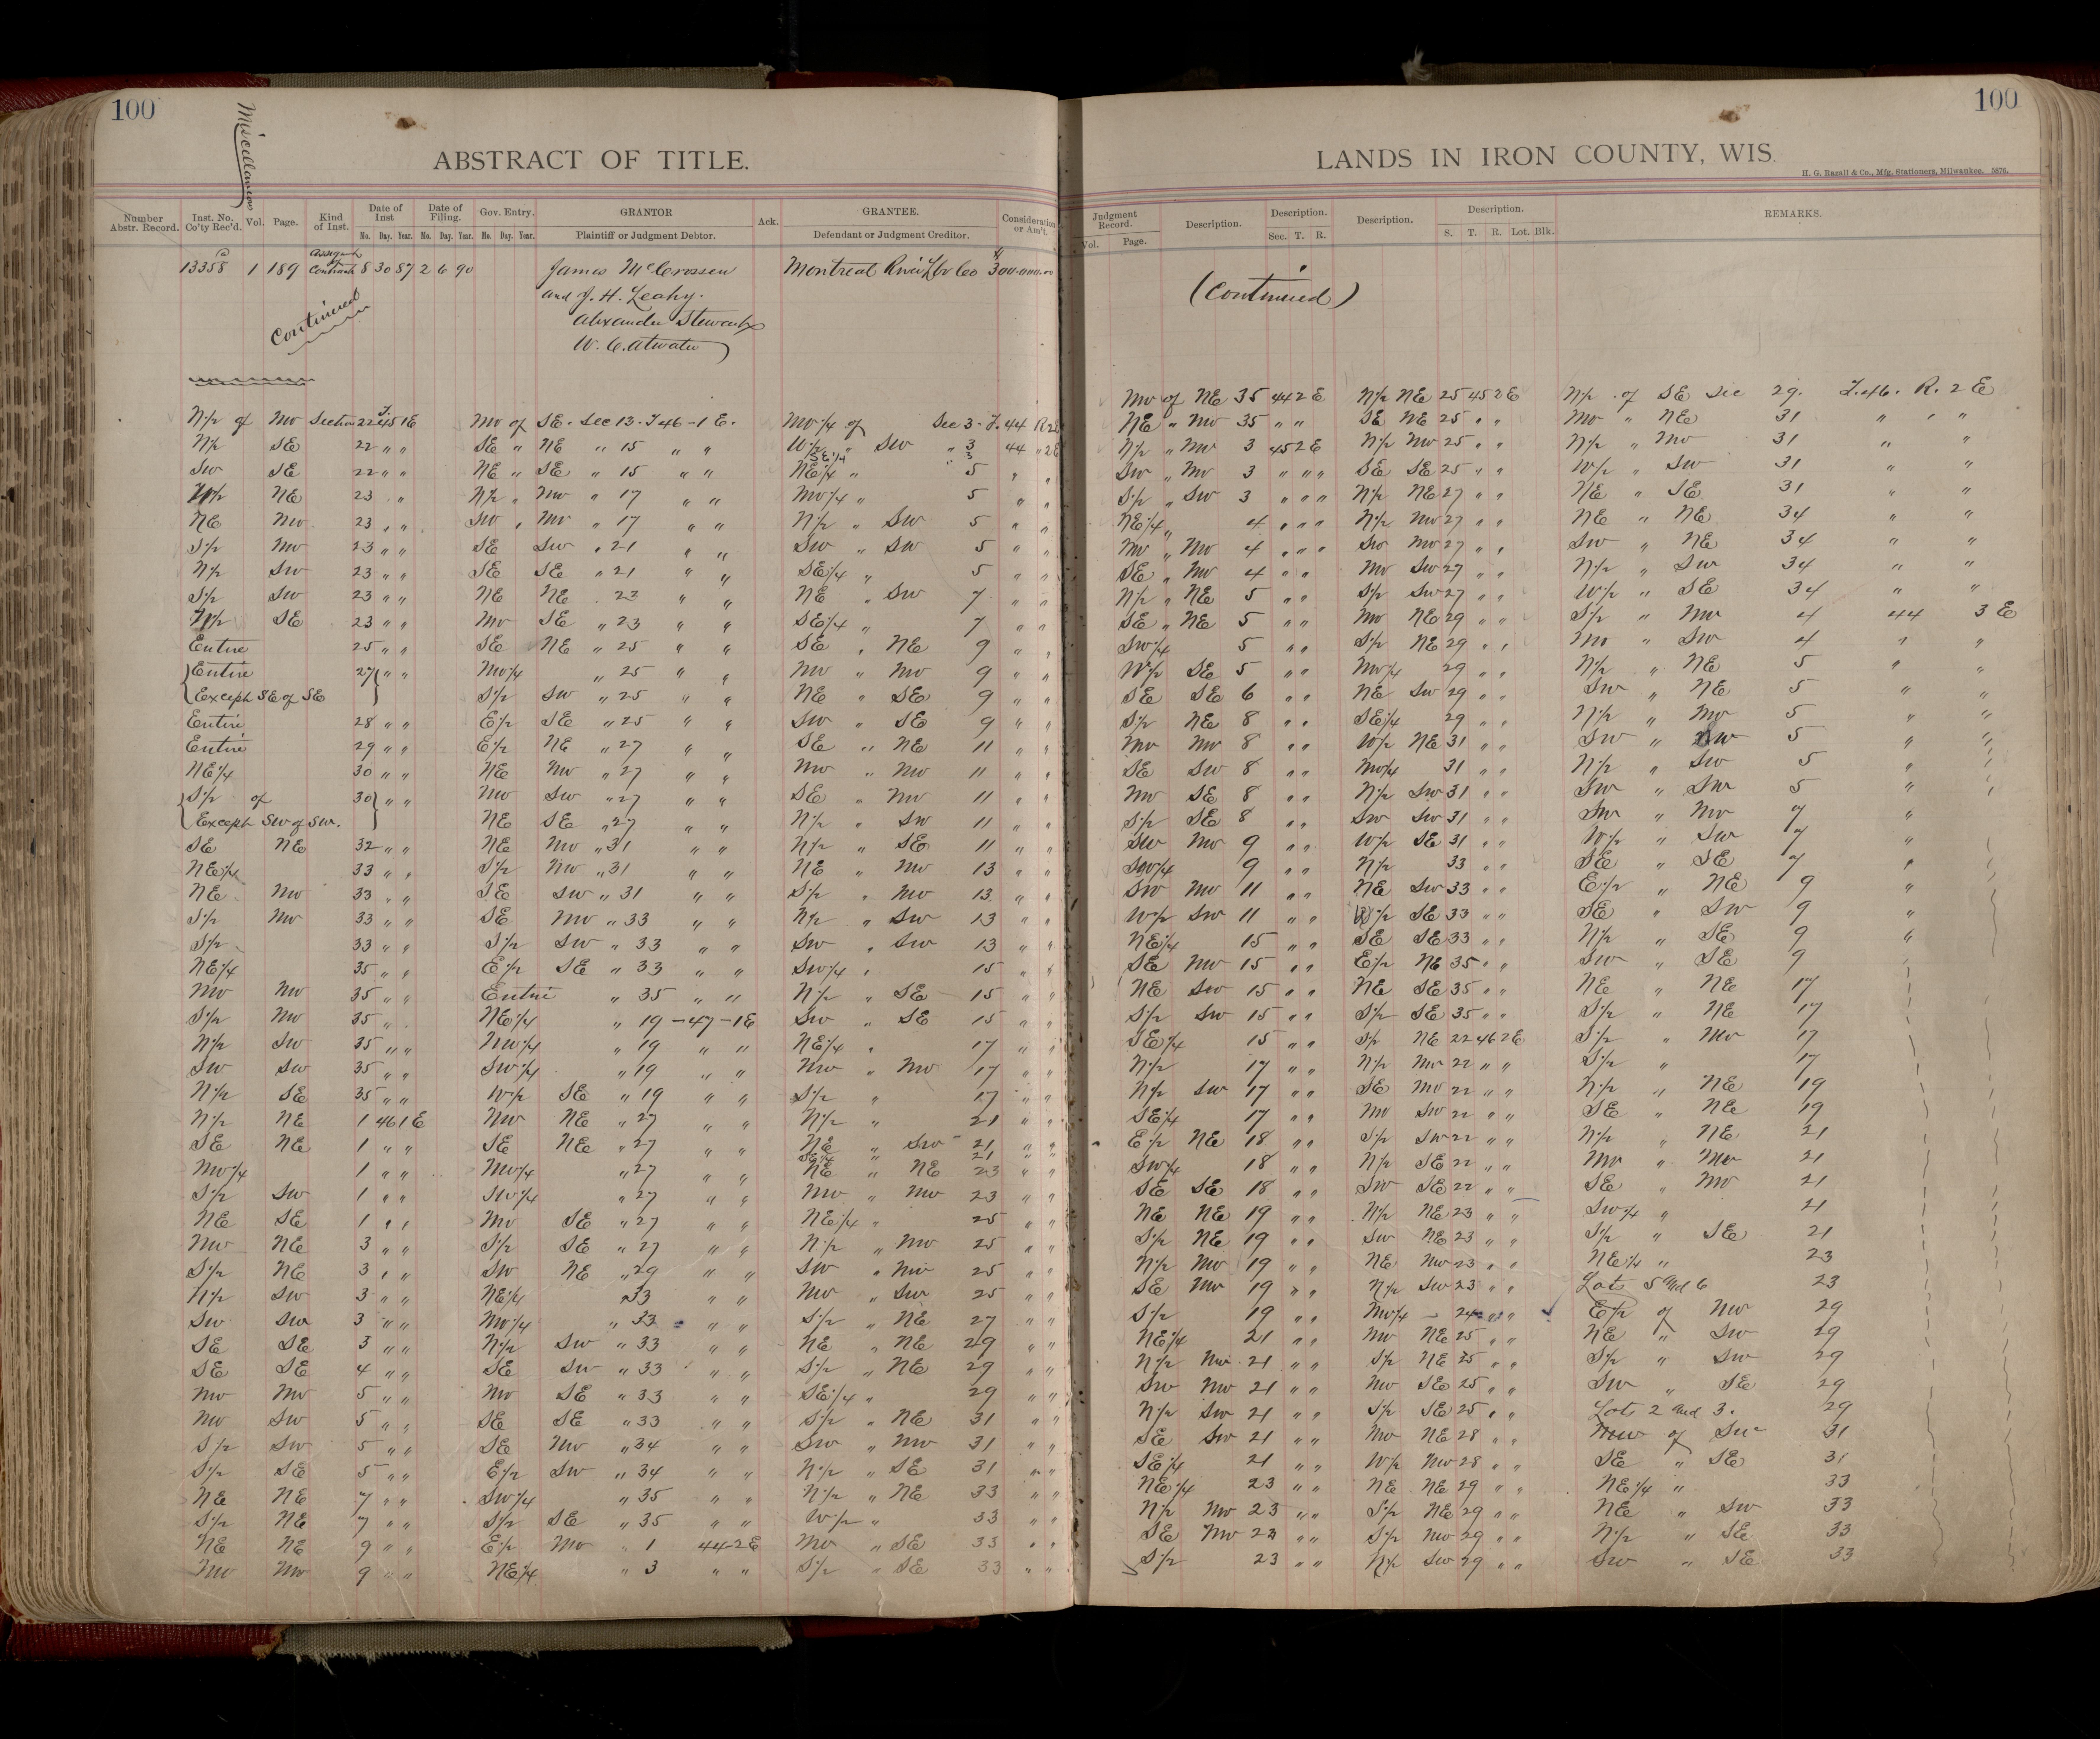 100
Miscellaneous
ABSTRACT OF TITLE.
Number Abstr. Record. Inst. No. Co'ty Rec'd. Vol. Page. Kind of Inst. Date of Inst Mo. Day. Year. Date of Filing. Mo. Day. Year. Gov. Entry. Mo. Day. Year. GRANTOR Plaintiff or Judgment Debtor. Ack. GRANTEE. Defendant or Judgment Creditor. Consideration or Am't.
13358 1 189 Contract 8 30 87 2 6 90 James McCrossen Montreal River Lbr Co $300.000.00
and J. H. Leahy.
Continued Alexander Stewart
W. C. Atwater
N½ of NW Section 22 T. 45 1E NW of SE. Sec 13. T 46 - 1 E. NW¼ of Sec 3. T. 44 R 2E
N½ SE 22 " " SE " NE " 15 " " W½ " SW " 3 44 " 2E
SE¼ 3
SW SE 22 " " NE " SE " 15 " " NE¼ " 5 " "
N½ NE 23 " N½ " NW " 17 " " NW¼ " 5 " "
NE NW 23 " " SW " NW " 17 " " N½ " SW 5 " "
S½ NW 23 " " SE SW " 21 " " SW " SW 5 " "
N½ SW 23 " " SE SE " 21 " " SE¼ " 5 " "
S½ SW 23 " " NE NE . 23 " " NE " SW 7 " "
N½ SE 23 " " NW SE " 23 " " SE¼ " 7 " "
Entire 25 " " SE NE " 25 " " SE " NE 9 " "
Entire 27 " " NW¼ " 25 " " NW " NW 9 " "
Except SE of SE S½ SW " 25 " " NE " SE 9 " "
Entire 28 " " E½ SE " 25 " " SW " SE 9 " "
Entire 29 " " E½ NE " 27 " " SE " NE 11 " "
NE¼ 30 " " NE NW " 27 " " NW " NW 11 " "
S½ of 30 " " NW SW " 27 " " SE " NW 11 " "
Except SW of SW. NE SE " 27 " " N½ " SW 11 " "
SE NE 32 " " NE NW " 31 " " N½ " SE 11 " "
NE¼ 33 " " S½ NW " 31 " " NE " NW 13 " "
NE NW 33 " " SE SW " 31 " " S½ " NW 13 " "
S½ NW 33 " " SE NW " 33 " " N½ " SW 13 " "
S½ 33 " " S½ SW " 33 " " SW " SW 13 " "
NE¼ 35 " " E½ SE " 33 " " SW¼ " 15 " "
NW NW 35 " " Entire " 35 " " N½ " SE 15 " "
S½ NW 35 " . NE¼ " 19 - 47 - 1E SW " SE 15 " "
N½ SW 35 " " NW¼ " 19 " " NE¼ " 17 " "
SW SW 35 " " SW¼ " 19 " " NW " NW 17 " "
N½ SE 35 " " W½ SE " 19 " " S½ " 17 " "
N½ NE 1 46 1E NW NE " 27 " " N½ " 21 " "
SE NE 1 " " SE NE " 27 " " NE " SW 21 " "
SE¼ 21 " "
NW¼ 1 " " NW¼ " 27 " " NE " NE 23 " "
S½ SW 1 " " SW¼ " 27 " " NW " NW 23 " "
NE SE 1 " " NW SE " 27 " " NE¼ " 25 " "
NW NE 3 " " S½ SE " 27 " " N½ " NW 25 " "
S½ NE 3 " " SW NE " 29 " " SW " NW 25 " "
N½ SW 3 " " NE¼ " 33 " " NW " SW 25 " "
SW SW 3 " " NW¼ " 33 " " S½ " NE 27 " "
SE SE 3 " " N½ SW " 33 " " NE " NE 29 " "
SE SE 4 " " SE SW " 33 " " S½ " NE 29 " "
NW NW 5 " " NW SE " 33 " " SE¼ " 29 " "
NW SW 5 " " SE SE " 33 " " S½ " NE 31 " "
S½ SW 5 " " SE NW " 34 " " SW " NW 31 " "
S½ SE 5 " " E½ SW " 34 " " N½ " SE 31 " "
NE NE 7 " " SW¼ " 35 " " N½ " NE 33 " "
S½ NE 7 " " S½ SE " 35 " " W½ " 33 " "
NE NE 9 " " E½ NW " 1 44-2E NW " SE 33 " "
NW NW 9 " " NE¼ " 3 " " S½ " SE 33 " "
100
LANDS IN IRON COUNTY, WIS.
H. G. Razall & Co., Mfg. Stationers, Milwaukee. 5876.
Judgment Record. Vol. Page. Description. Description. Sec. T. R. Description. Description. S. T. R. Lot. Blk. REMARKS.
(Continued)
NW of NE 35 44 2E N½ NE 25 45 2E N½ of SE Sec 29. T. 46. R. 2 E
NE " NW 35 " " SE NE 25 " " NW " NE 31 " " "
N½ " NW 3 45 2E N½ NW 25 " " N½ " NW 31 " "
SW " NW 3 " " " SE SE 25 " " W½ " SW 31 " "
S½ " SW 3 " " " N½ NE 27 " " NE " SE 31 " "
NE¼ " 4 " " " N½ NW 27 " " NE " NE 34 " "
NW " NW 4 " " " SW NW 27 " " SW " NE 34 " "
SE " NW 4 " " NW SW 27 " " N½ " SW 34 " "
N½ " NE 5 " " S½ SW 27 " " W½ " SE 34 " "
SE " NE 5 " " NW NE 29 " " S½ " NW 4 44 3 E
SW¼ 5 " " S½ NE 29 " " NW " SW 4 " "
W½ SE 5 " " NW¼ 29 " " N½ " NE 5 " "
SE SE 6 " " NE SW 29 " " SW " NE 5 " "
S½ NE 8 " " SE¼ 29 " " N½ " NW 5 " "
NW NW 8 " " W½ NE 31 " " SW " NW 5 " "
SE SW 8 " " NW¼ 31 " " N½ " SW 5 " "
NW SE 8 " " N½ SW 31 " " SW " SW 5 "
S½ SE 8 " " SW SW 31 " " SW " NW 7 "
SW NW 9 " " W½ SE 31 " " W½ " SW 7 "
SW¼ 9 " " N½ 33 " " SE " SE 7 "
SW NW 11 " " NE SW 33 " " E½ " NE 9 "
W½ SW 11 " " W½ SE 33 " " SE " SW 9 "
NE¼ 15 " " SE SE 33 " " N½ " SE 9 "
SE NW 15 " " E½ NE 35 " " SW " SE 9
NE SW 15 " " NE SE 35 " " NE " NE 17
S½ SW 15 " " S½ SE 35 " " S½ " NE 17
SE¼ 15 " " S½ NE 22 46 2E S½ " NW 17
N½ 17 " " N½ NW 22 " " S½ " 17
N½ SW 17 " " SE NW 22 " " N½ " NE 19
SE¼ 17 " " NW SW 22 " " SE " NE 19
E½ NE 18 " " S½ SW 22 " " N½ " NE 21
SW¼ 18 " " N½ SE 22 " " NW " NW 21
SE SE 18 " " SW SE 22 " " SE " NW 21
NE NE 19 " " N½ NE 23 " " SW¼ " 21
S½ NE 19 " " SW NE 23 " " S½ " SE 21
N½ NW 19 " " NE NW 23 " " NE¼ " 23
SE NW 19 " " N½ SW 23 " " Lots 5 and 6 23
S½ 19 " " NW¼ 24 " " E½ of NW 29
NE¼ 21 " " NW NE 25 " " NE " SW 29
N½ NW 21 " " S½ NE 25 " " S½ " SW 29
SW NW 21 " " NW SE 25 " " SW " SE 29
N½ SW 21 " " S½ SE 25 " " Lots 2 and 3. 29
SE SW 21 " " NW NE 28 " " NW of SW 31
SE¼ 21 " " W½ NW 28 " " SE " SE 31
NE¼ 23 " " NE NE 29 " " NE¼ " 33
N½ NW 23 " " S½ NE 29 " " NE " SW 33
SE NW 23 " " S½ NW 29 " " N½ " SE 33
S½ 23 " " N½ SW 29 " " SW " SE 33